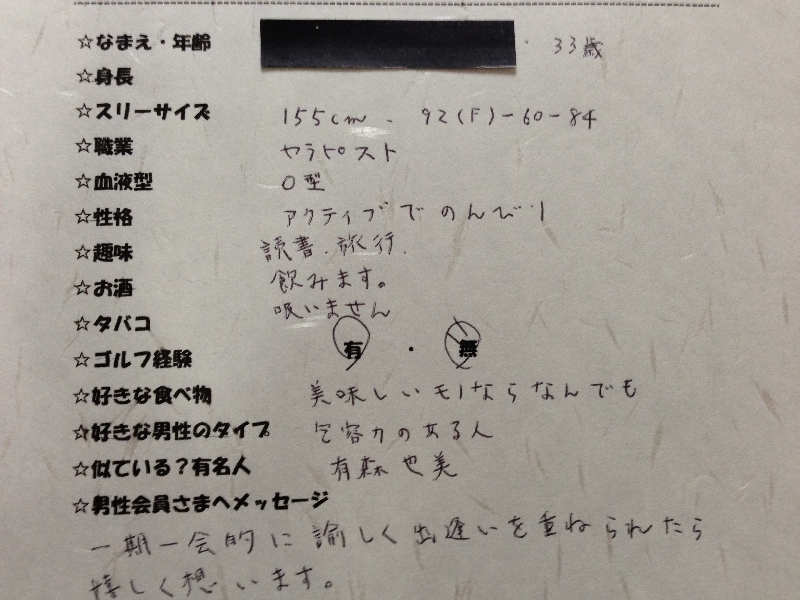 ☆なまえ・年齢 33歳
☆身長
☆スリーサイズ 155cm. 92(F)-60-84
☆職業 セラピスト
☆血液型 O型
☆性格 アクティブでのんびり
☆趣味 読書.旅行.
☆お酒 飲みます。
☆タバコ 吸いません
☆ゴルフ経験 有・無
☆好きな食べ物 美味しいモノならなんでも
☆好きな男性のタイプ 包容力のある人
☆似ている？有名人 有森也美
☆男性会員さまへメッセージ
一期一会的に諭しく出逢いを重ねられたら
嬉しく想います。